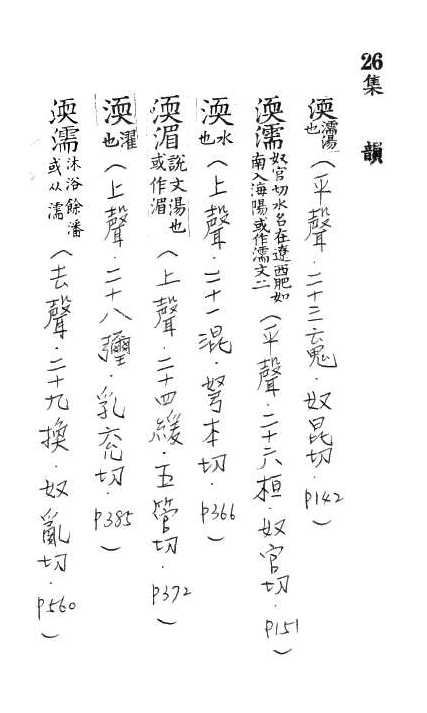 26集韻
渜濡湯也（平聲．二十三魂．奴昆切．P142）
渜濡奴官切水名在遼西肥如南入海陽或作濡文二（平聲．二十六桓．奴官切．P151）
渜水也（上聲．二十一混．弩本切．P366）
渜湄說文湯也或作湄（上聲．二十四緩．五管切．P372）
渜濯也（上聲．二十八獮．乳兗切．P385）
渜濡沐浴餘潘或从濡（去聲．二十九換．奴亂切．P560）